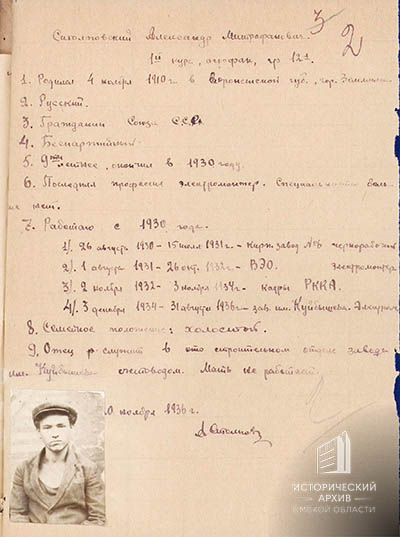 3
2
Сатоловский Александр Митрофанович.
1ый курс, агрофак, гр 121
1. Родился 4 ноября 1910 г. в Воронежской губ., гор. Землянск
2. Русский.
3. Гражданин Союза ССР
4. Беспартийный
5. 9ти летнее, окончил в 1930 году.
6. Последняя профессия электромонтер. Специальности боль-
ше нет.
7. Работаю с 1930 года.
1/. 26 августа 1930 - 15 июля 1931 г. - Кирп. завод №6 чернорабочим
2/. 1 августа 1931 - 26 окт. 1932 г. - ВЭО. электромонтер
3/. 2 ноября 1932 - 3 ноября 1934 г. - кадры РККА.
4/. 3 декабря 1934 - 31 августа 1936 г. - зав. им. Куйбышева. Электром
8. Семейное положение: холостой
9. Отец служит в строительном отделе завода
им. Куйбышева счетоводом. Мать не работает.
10 ноября 1936 г.
ИСТОРИЧЕСКИЙ
АРХИВ
ОМСКОЙ ОБЛАСТИ